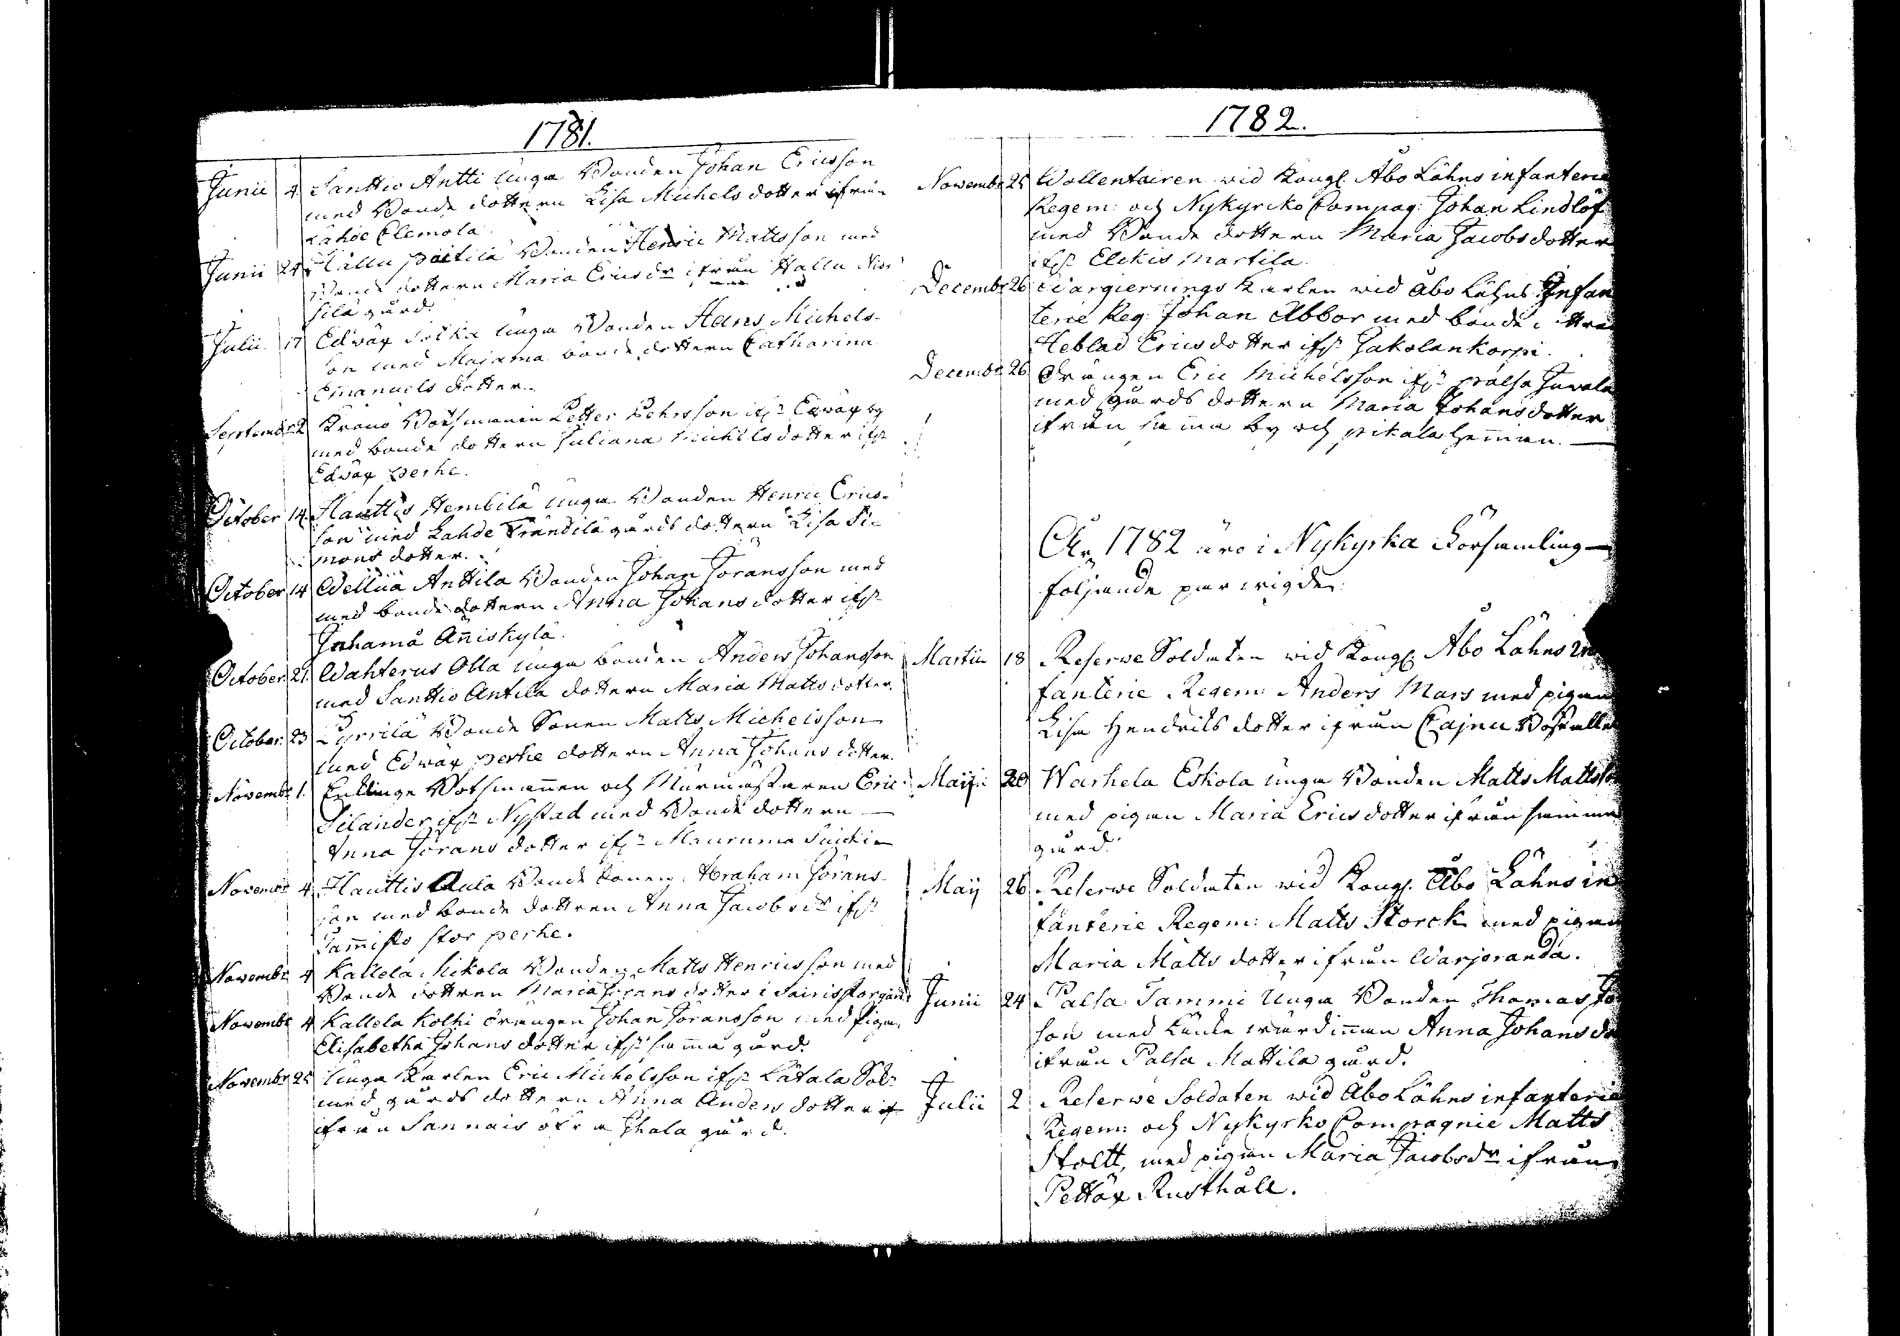 1781.
Junii 4. Santtio Antti unga Bonden Johan Ericsson
med Bonde dottern Lisa Michels dotter ifrån
Lahde Clemola.
Junii 24 Hallu Bonden Henric Mattsson med
Bonde dottern Maria Ericsdr ifrån Hallu
sila gård.
Julii 17 Edwäx unga Bonden Hans Michels-
son med bonde dottern Catharina
Emanuels dotter.
Septembr 2 Krono Botsmannen Petter ifr. Edwäx by
med bonde dottern Juliana Michelsdotter ifr.
Edwäx perhe.
October 14. Hauttis Hembilä unga Bonden Henric Erics-
son med Lahde gårds dottern Lisa Si-
mons dotter.
October 14 Anttila Bonden Johan Jöransson med
med bonde dottern Anna Johans dotter ifr.
Juhamå Anniskylä.
October 21. Wahterus Olla unga bonden Anders Johansson
med Santtio Antila dottern Maria Matts dotter.
October 23 Pyrrilä Bonde Sonen Matts Michelsson
med Edwäx perhe dottern Anna Johans dotter.
Novembr 1. Botsmannen och Murmästaren Eric
Silander ifr. Nystad med Bonde dottern
Anna Jörans dotter ifr. Mauruma
Novembr 4 Hauttis Aula Bonde Sonen Abraham Jörans-
son med bonde dottren Anna Jacobsdr ifr.
Tammisto stor perhe.
Novembr 4 Kallela Mikola Bonden Matts Henricsson med
Bonde dottren Maria Jörans dotter i
Novembr 4 Kallela Kolhi drängen Johan Jöransson med pigan
Elisabetha Johans dotter ifr. samma gård.
Novembr 25 Unga Karlen Eric Michelsson ifr. Lätala
med gårds dottern Anna Anders dotter
ifrån Sannais öfra Jhala gård.
1782.
Novembr 25 Wollentairen wid Kongl. Åbo Lähns infanterie
Regem: och Nykyrko Compag: Johan Lindlöf
med Bonde dottern Maria Jacobsdotter
ifr. Elckis Martila.
Decembr 26 Wargiernings Karlen wid Åbo Lähns Infan
terie Reg: Johan Abbor med bonde
Heblad Ericsdotter ifr. Jakolankorpi.
Decembr 26 Drängen Eric Michelsson ifr. Palsa Juvala
med gårds dottern Maria Johansdotter
ifrån samma by och Pikala Hemman.
År 1782 äro i Nykyrka Församling
följande par wigde:
Martii 18 Reserve Soldaten wid Kongl. Åbo Lähns In
fanterie Regem: Anders Mars med pigan
Lisa Hendrics dotter ifrån Cajnu
Maij 20 Warhela Eskola unga Bonden Matts Matts
med pigan Maria Ericsdotter ifrån samma
gård.
Maij 26 Reserve Soldaten wid Kongl. Åbo Lähns in
fanterie Regem: Matts Storck med pigan
Maria Matts dotter ifrån Warjoranda.
Junii 24 Palsa Tammi Unga Bonden Thomas
son med Anna Johans dr
ifrån Palsa Mattila gård.
Julii 2 Reserve Soldaten wid Åbo Lähns infanterie
Regem: och Nykyrko Compagnie Matts
Stoltt, med pigan Maria Jacobsdr ifrån
Pettäx Rusthåll.